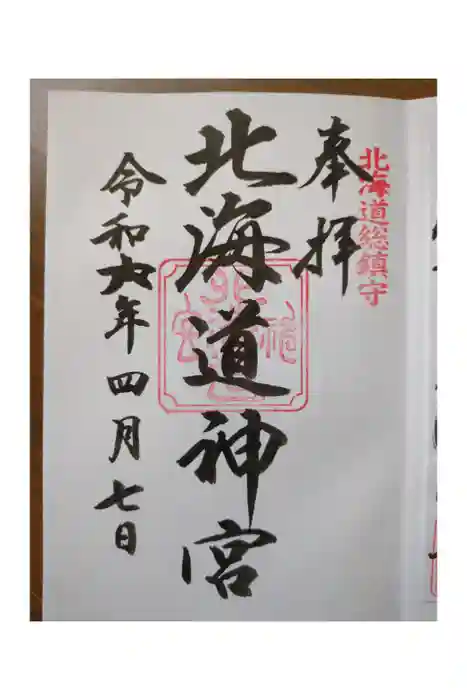 北海道総鎮守
奉拝
北海道神宮
令和六年四月七日